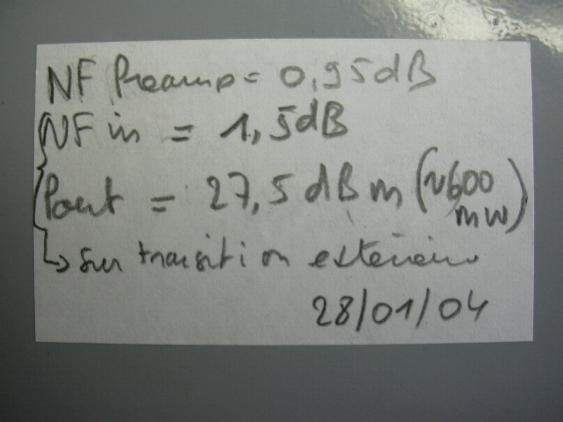 NF Preamp = 0,95dB
NF in = 1,5dB
Pout = 27,5 dBm (~600 mW)
↳ sur transition extérieure
28/01/04